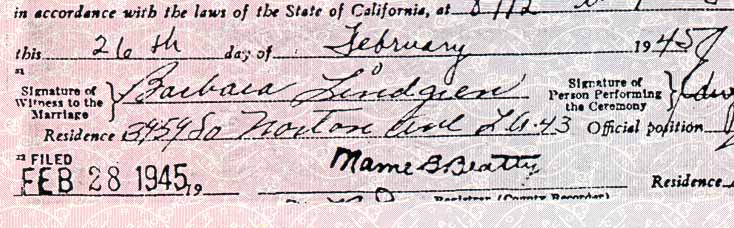 in accordance with the laws of the State of California, at
this 26th day of February 1945
21
Signature of Witness to the Marriage } Barbara Lindgren Signature of Person Performing the Ceremony }
Residence 3454 So Norton Ave L.A. 43 Official position
22 FILED Mame B. Beatty
FEB 28 1945, 19 Residence
Registrar (County Recorder)